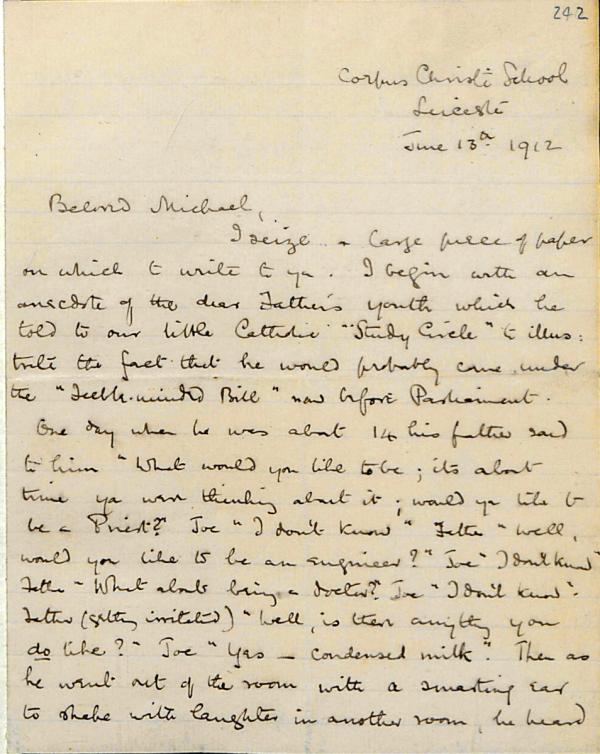 242
Corpus Christi School
Leicester
June 13th 1912
Beloved Michael,
I seize a large piece of paper
on which to write to ya. I begin with an
anecdote of the dear Father's youth which he
told to our little Catholic "Study Circle" to illus:
trate the fact that he would probably come under
the "Feeble-minded Bill" now before Parliament.
One day when he was about 14 his father said
to him "What would you like to be; its about
time ya were thinking about it; would ya like to
be a Priest?" Joe "I don't know" Father "Well,
would you like to be an engineer?" Joe "I don't know"
Father "What about being a doctor?" Joe "I don't know".
Father (getting irritated) "Well, is there anything you
do like?" Joe "Yes — condensed milk". Then as
he went out of the room with a smarting ear
to shake with laughter in another room, he heard